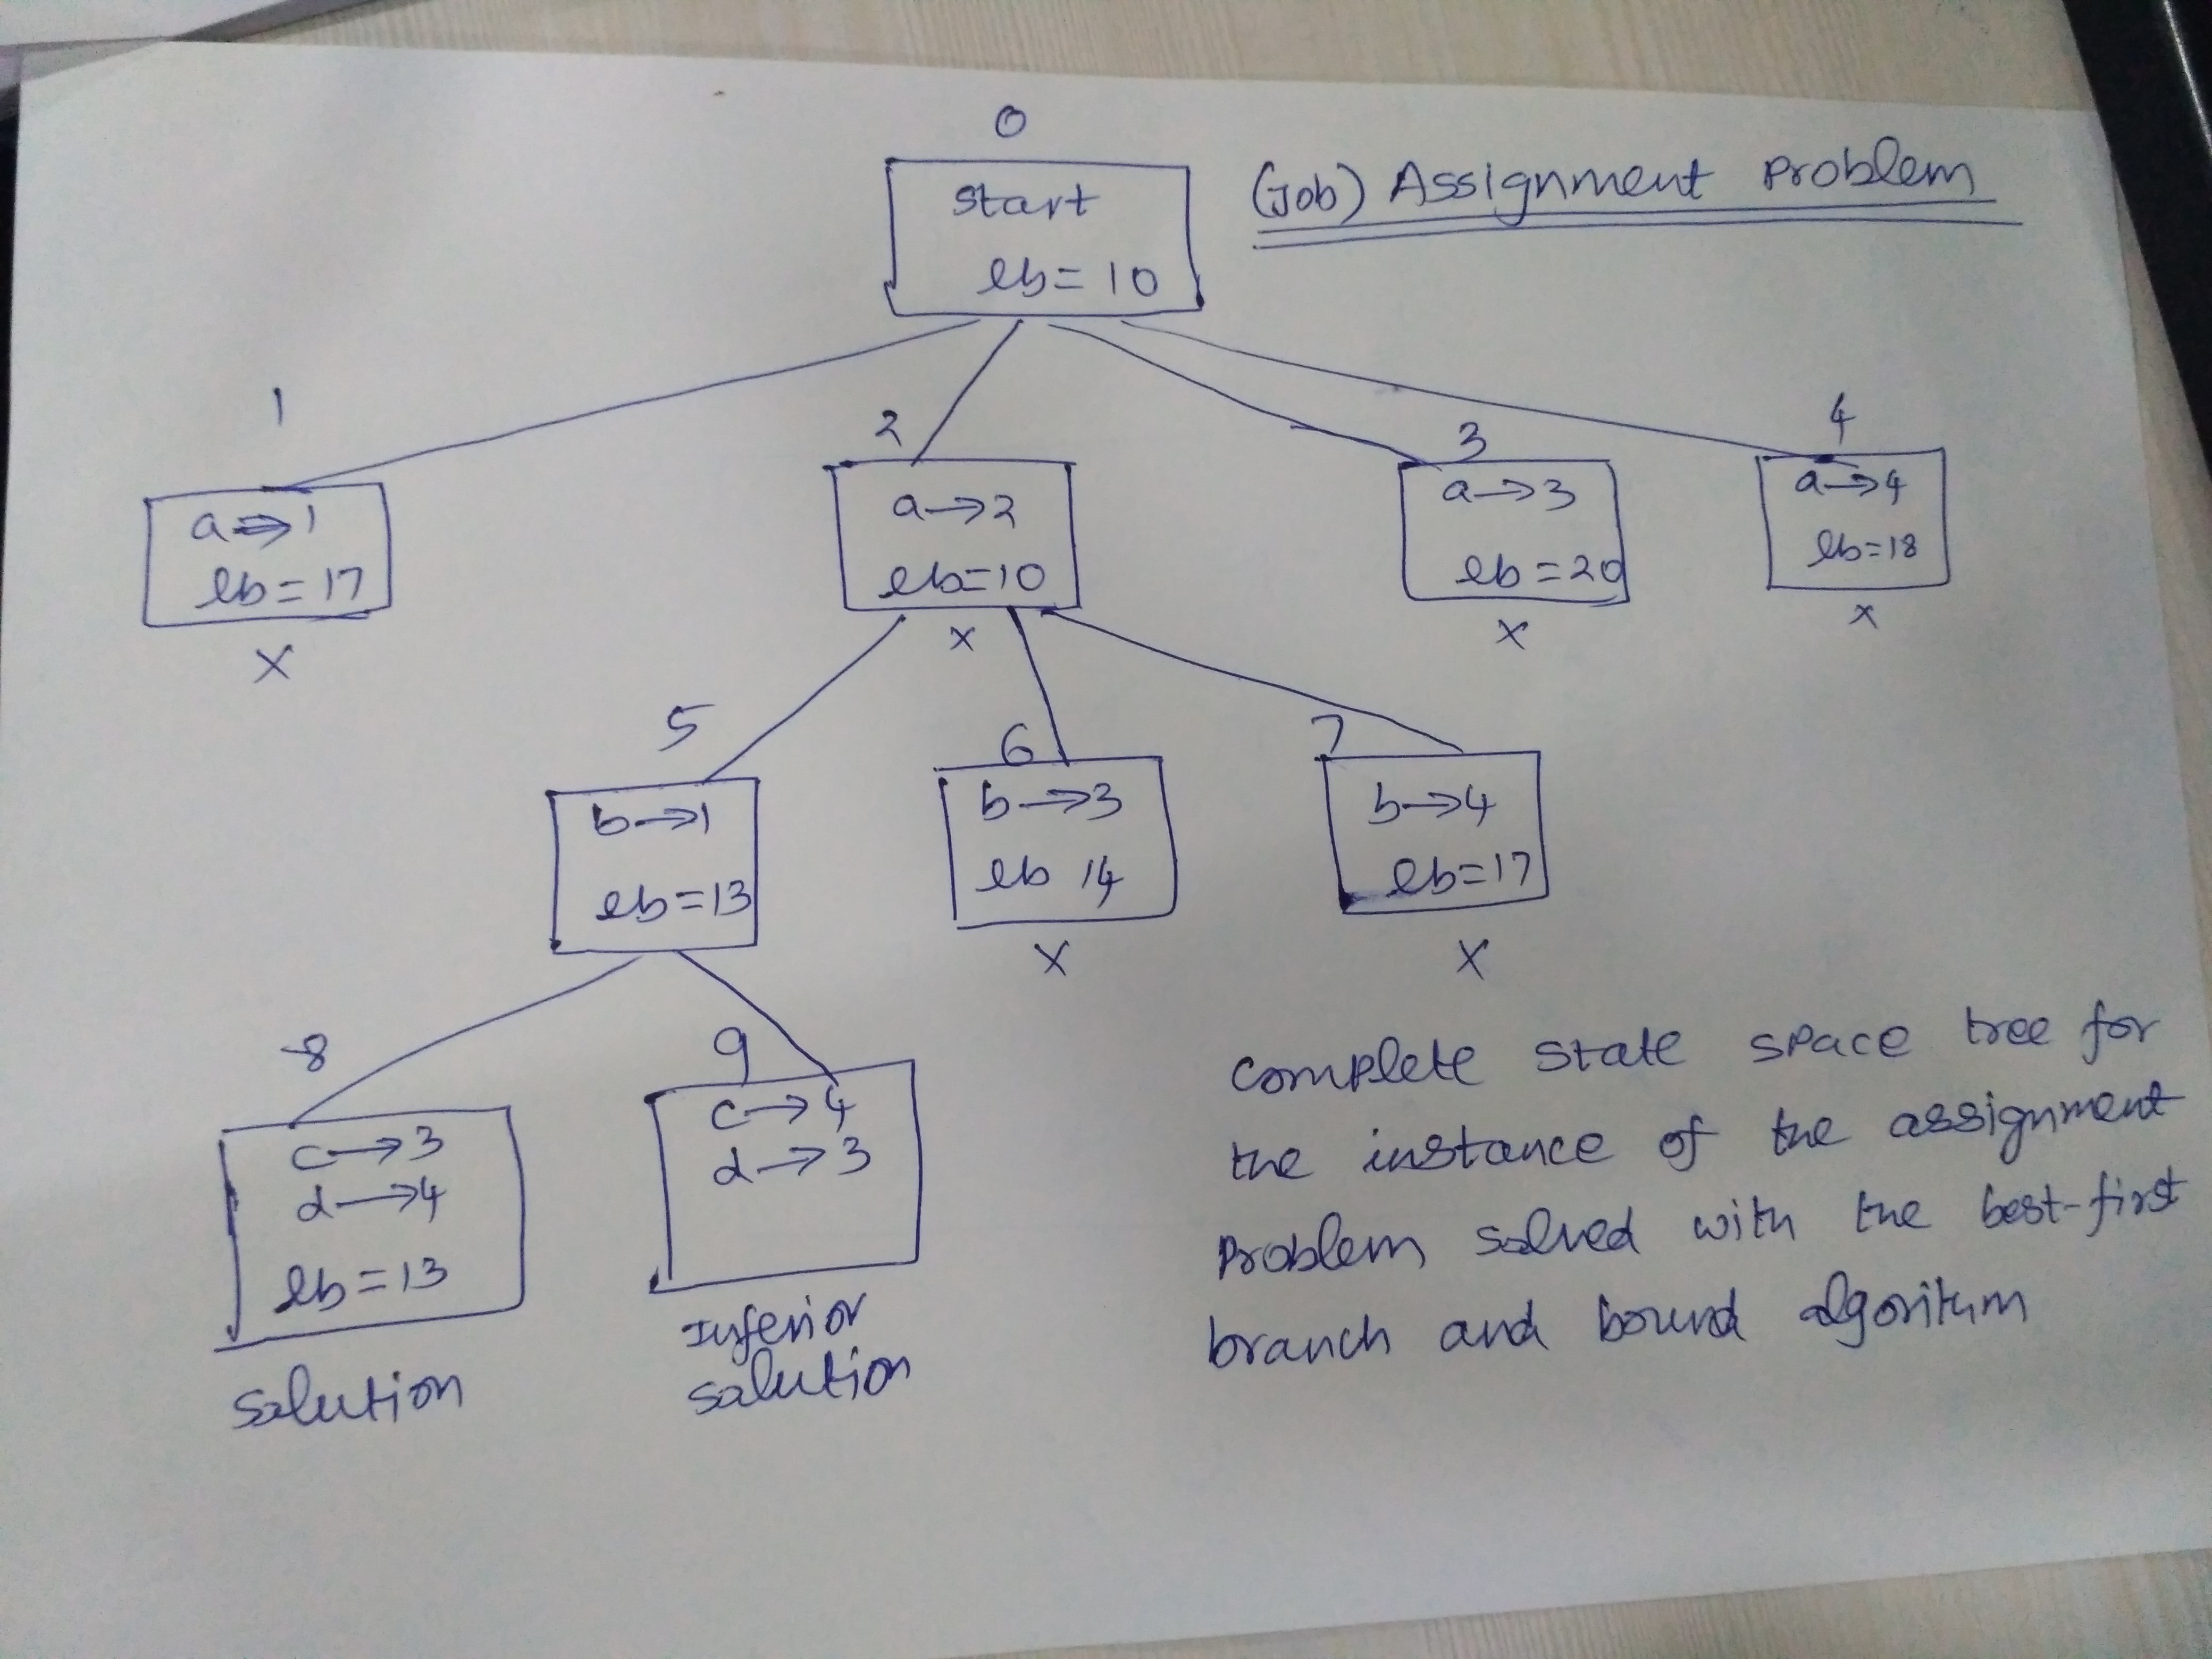 0
start
lb = 10
(Job) Assignment Problem
1
a → 1
lb = 17
X
2
a → 2
lb = 10
X
3
a → 3
lb = 20
X
4
a → 4
lb = 18
X
5
b → 1
lb = 13
6
b → 3
lb 14
X
7
b → 4
lb = 17
X
8
c → 3
d → 4
lb = 13
solution
9
c → 4
d → 3
Inferior
solution
complete state space tree for
the instance of the assignment
Problem solved with the best-first
branch and bound algorithm